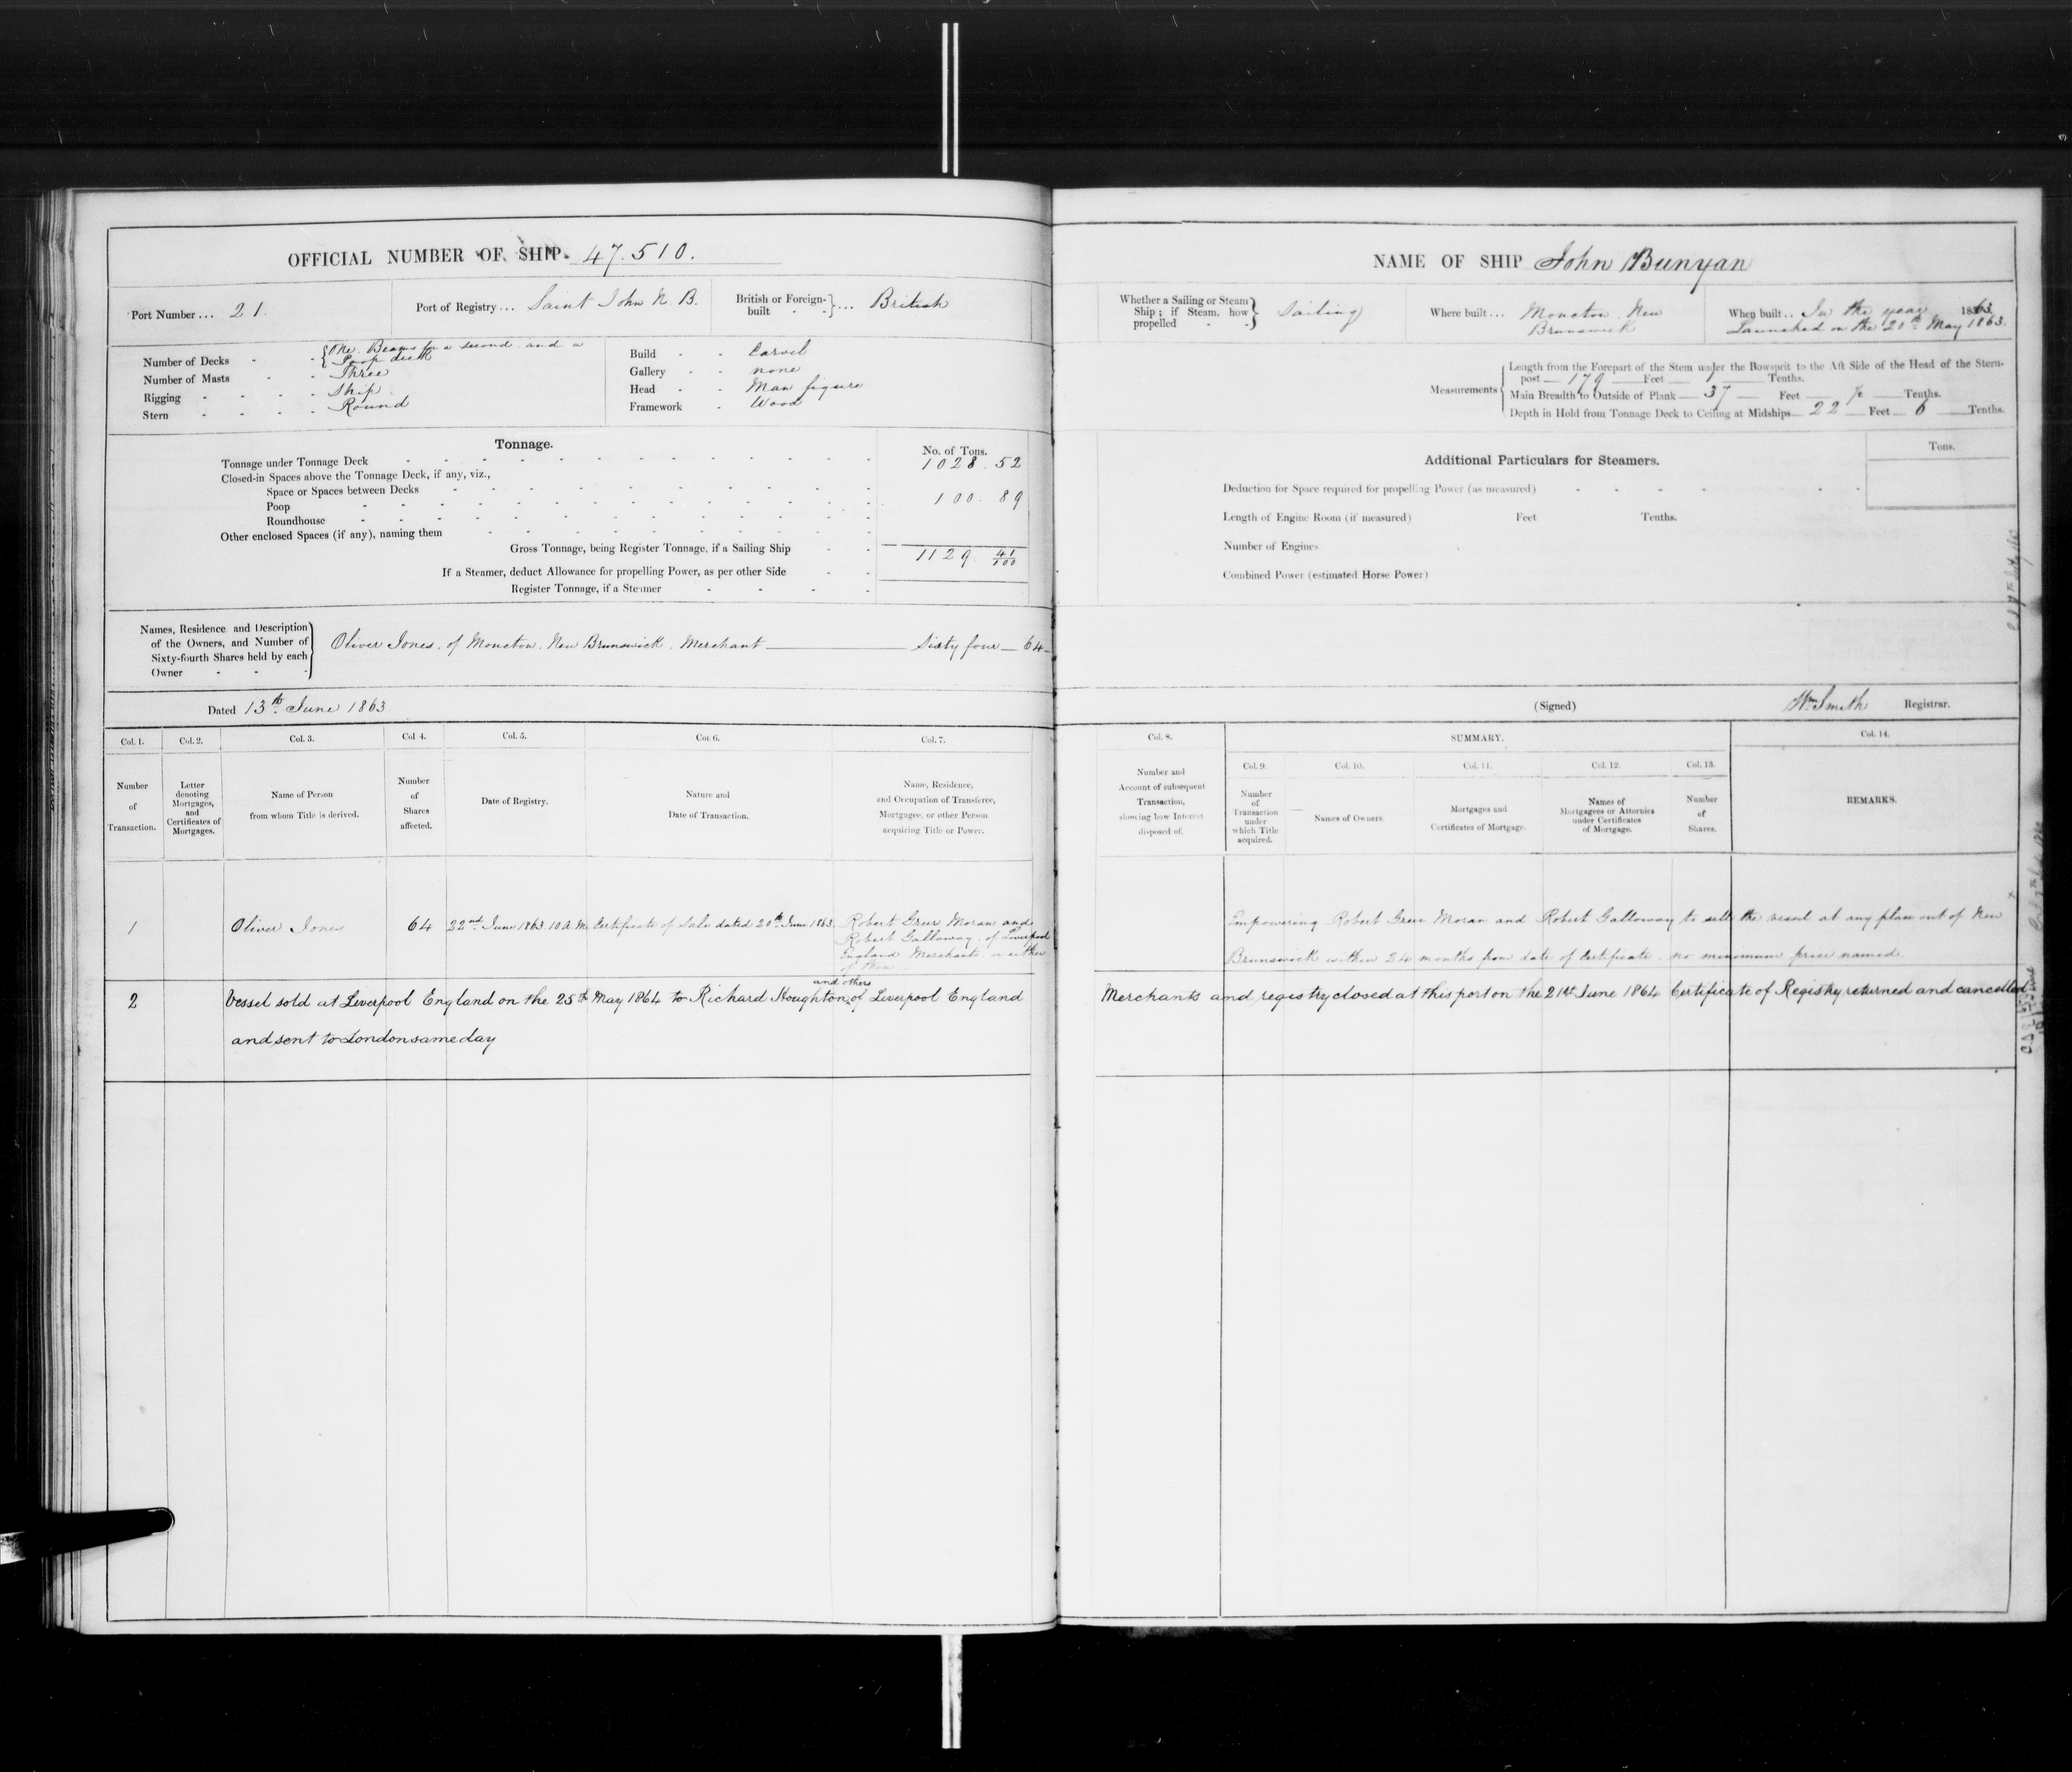 OFFICIAL NUMBER OF SHIP. 47.510.
Port Number ... 21.
Port of Registry ... Saint John N B.
British or Foreign-built ... British
Number of Decks - One. Beams for a second and a Poop deck
Number of Masts - Three
Rigging - Ship
Stern - Round
Build - Carvel
Gallery - none
Head - Man figure
Framework - Wood
Tonnage.
No. of Tons.
Tonnage under Tonnage Deck 1028.52
Closed-in Spaces above the Tonnage Deck, if any, viz.,
Space or Spaces between Decks
Poop 100.89
Roundhouse
Other enclosed Spaces (if any), naming them
Gross Tonnage, being Register Tonnage, if a Sailing Ship 1129 41/100
If a Steamer, deduct Allowance for propelling Power, as per other Side
Register Tonnage, if a Steamer
Names, Residence and Description of the Owners, and Number of Sixty-fourth Shares held by each Owner
Oliver Jones, of Moncton, New Brunswick, Merchant — Sixty four — 64
Dated 13th June 1863
Col. 1. Number of Transaction.
Col. 2. Letter denoting Mortgages, and Certificates of Mortgages.
Col. 3. Name of Person from whom Title is derived.
Col. 4. Number of Shares affected.
Col. 5. Date of Registry.
Col. 6. Nature and Date of Transaction.
Col. 7. Name, Residence, and Occupation of Transferee, Mortgagee, or other Person acquiring Title or Power.
1 Oliver Jones 64 22nd June 1863 10 A.M. Certificate of Sale dated 20th June 1863. Robert Greer Moran and
Robert Galloway, of Liverpool
England Merchants or either
of them
and others
2 Vessel sold at Liverpool England on the 25th May 1864 to Richard Houghton of Liverpool England
and sent to London same day
NAME OF SHIP John Bunyan
Whether a Sailing or Steam Ship; if Steam, how propelled - Sailing
Where built ... Moncton New Brunswick
When built .. In the year 1863.
Launched on the 20th May 1863.
Measurements
Length from the Forepart of the Stem under the Bowsprit to the Aft Side of the Head of the Stern-
post — 179 — Feet — 1 — Tenths.
Main Breadth to Outside of Plank — 37 — Feet — Tenths.
Depth in Hold from Tonnage Deck to Ceiling at Midships — 22 — Feet — 6 — Tenths.
Additional Particulars for Steamers.
Tons.
Deduction for Space required for propelling Power (as measured)
Length of Engine Room (if measured) Feet Tenths.
Number of Engines
Combined Power (estimated Horse Power)
(Signed) Wm Smith Registrar.
Col. 8. Number and Account of subsequent Transaction, showing how Interest disposed of.
SUMMARY.
Col. 9. Number of Transaction under which Title acquired.
Col. 10. Names of Owners.
Col. 11. Mortgages and Certificates of Mortgage.
Col. 12. Names of Mortgagees or Attornies under Certificates of Mortgage.
Col. 13. Number of Shares.
Col. 14. REMARKS.
Empowering Robert Greer Moran and Robert Galloway to sell the vessel at any place out of New
Brunswick within 24 months from date of Certificate. no minimum price named.
Merchants and registry closed at this port on the 21st June 1864 Certificate of Registry returned and cancelled